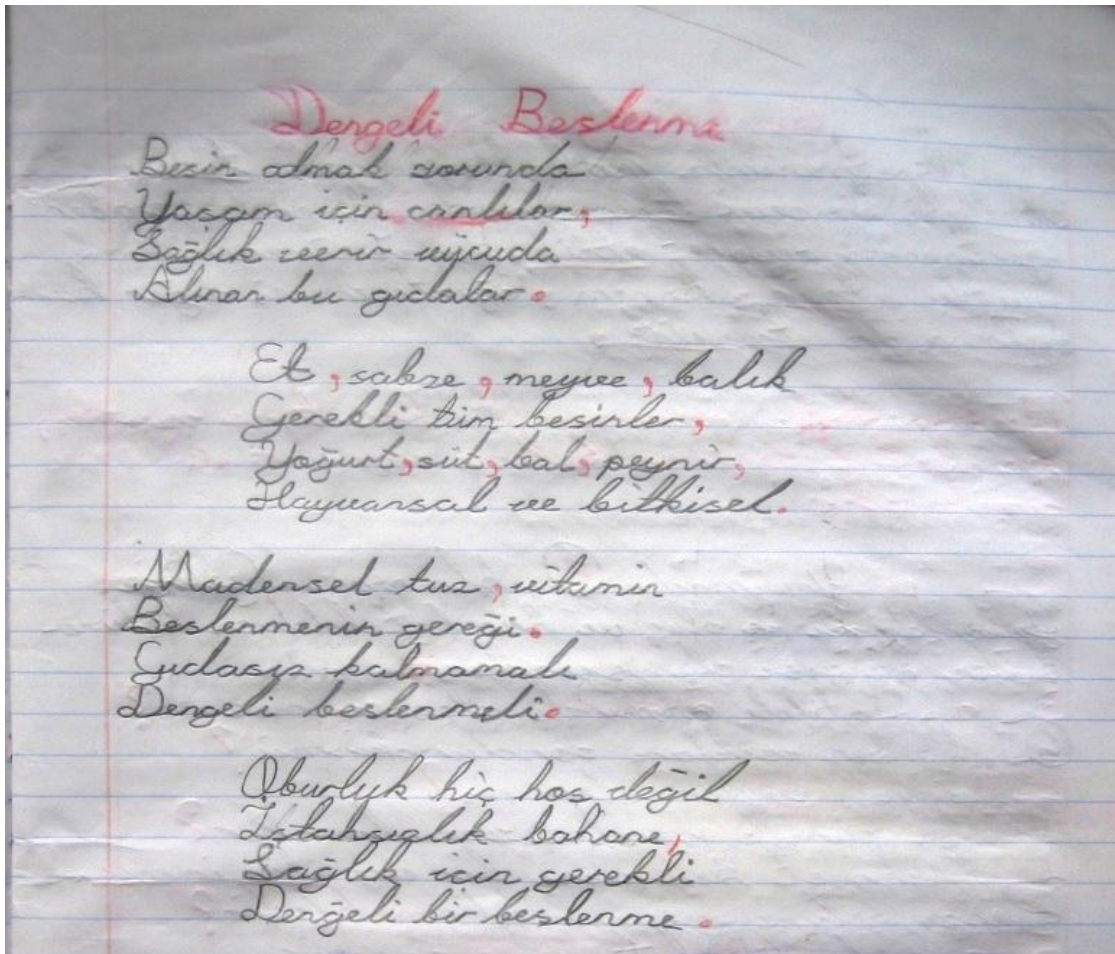 Dengeli Beslenme
Besin almak zorunda
Yaşam için canlılar,
Sağlık verir vücuda
Alınan bu gıdalar.
Et, sebze, meyve, balık
Gerekli tüm besinler,
Yoğurt, süt, bal, peynir,
Hayvansal ve bitkisel.
Madensel tuz, vitamin
Beslenmenin gereği.
Gıdasız kalmamalı
Dengeli beslenmeli.
Oburluk hiç hoş değil
İştahsızlık bahane,
Sağlık için gerekli
Dengeli bir beslenme.